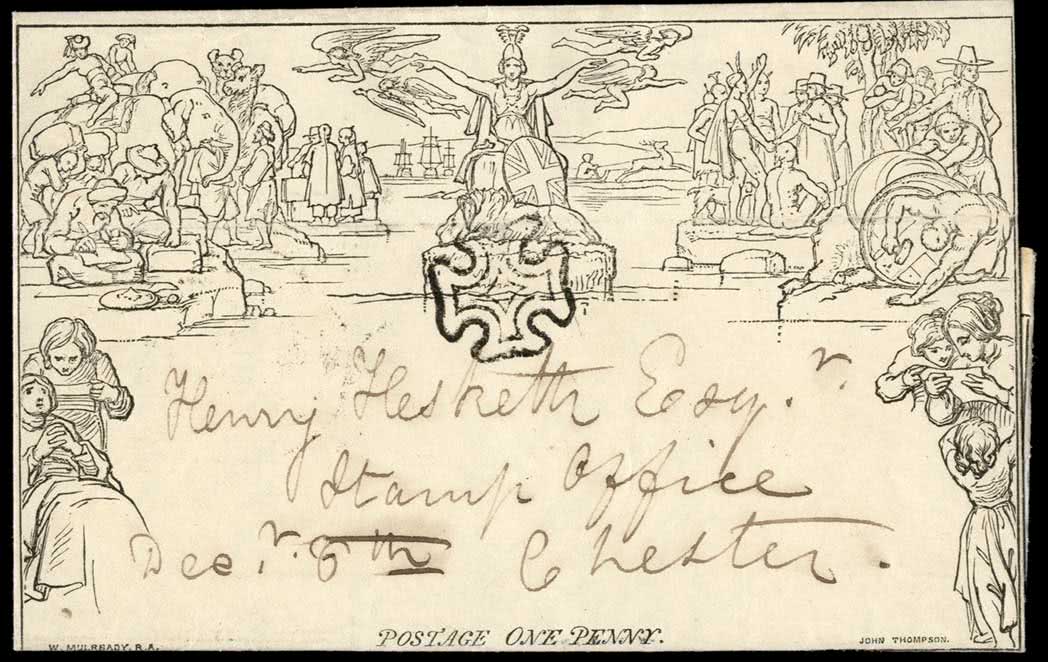 Henry Hesketh Esqr.
Stamp Office
Decr. 6th Chester.
POSTAGE ONE PENNY.
W. MULREADY, R.A.
JOHN THOMPSON.